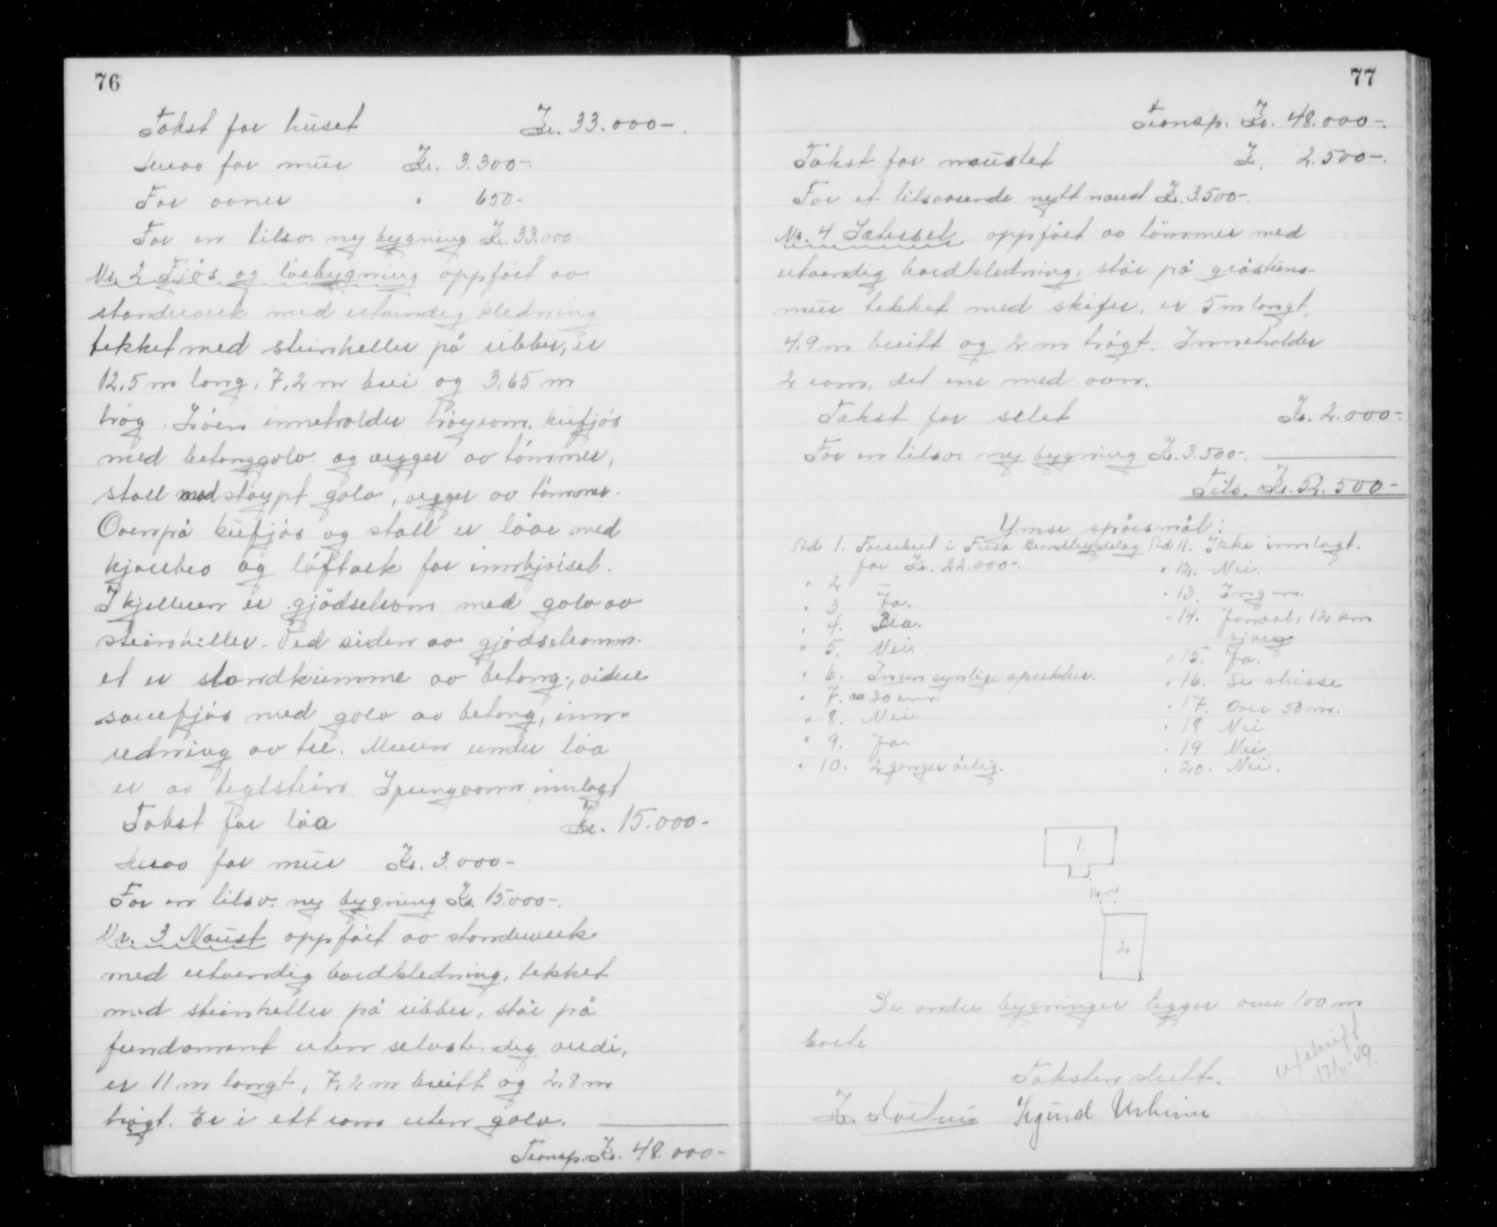 76
Takst for huset Kr. 33.000-.
Herav for mur Kr. 3.300-.
For ovner " 650-
For en tilsv. ny bygning Kr. 33.000.
Nr. 2 Fjös og löebygning oppfört av
standverk med utvendig kledning
tekket med steinheller på ribber, er
12,5 m lang, 7,2 m brei og 3,65 m
høg. Löen inneholder høyrom, kufjös
med betonggolv og vegger av tömmer,
stall med støypt golv, vegger av tömmer.
Ovenpå kufjös og stall er löve med
kjørebro og löftark for innkjøisel.
I kjelleren er gjödselrom med golv av
steinheller. Ved siden av gjödselromm.
et er slandkumme av betong, videre
sauefjös med golv av betong, inn-
redning av tre. Muren under löa
er av teglstein. Springvann innlagt
Takst for löa Kr. 15.000-
Herav for mur Kr. 3.000-
For en tilsv. ny bygning Kr. 15.000-.
Nr. 3 Naust oppfört av standverk
med utvendig bordkledning, tekket
med steinheller på ribber, står på
fundament uten selvstendig verdi,
er 11 m langt, 7,2 m breitt og 2,8 m
høgt. Er i ett rom uten golv.
Transp. Kr. 48.000-
77
Transp. Kr. 48.000-.
Takst for naustet Kr. 2.500-.
For et tilsvarende nytt naust Kr. 3500-.
Nr. 4 Sætersel oppfört av tömmer med
utvendig bordkledning, står på gråsteins-
mur tekket med skifer, er 5 m langt,
4.9 m breitt og 2 m högt. Inneholder
2 rom, det ene med ovn.
Takst for selet Kr. 2.000-.
For en tilsv. ny bygning Kr. 3.500-.
Tils. Kr. 52.500-
Ymse spörsmål:
Ad 1. Forsikret i Fusa Brandtrygdelag
for Kr. 22.000-.
" 2
" 3 Ja.
" 4.
" 5. Nei.
" 6. Ingen synlige sprekker.
" 7. 20 cm.
" 8. Nei.
" 9. Ja.
" 10. 2 ganger årlig.
Ad 11. Ikke innlagt.
" 12. Nei.
" 13. Ingen.
" 14. 12 km
sjøveg
" 15. Ja.
" 16. Se skisse
" 17. Over 50 m.
" 18 Nei.
" 19 Nei.
" 20. Nei.
1.
16 m
2
De andre bygninger ligger over 100 m
borte
Taksten slutt.
utskrift
17/11-49.
Sjurd